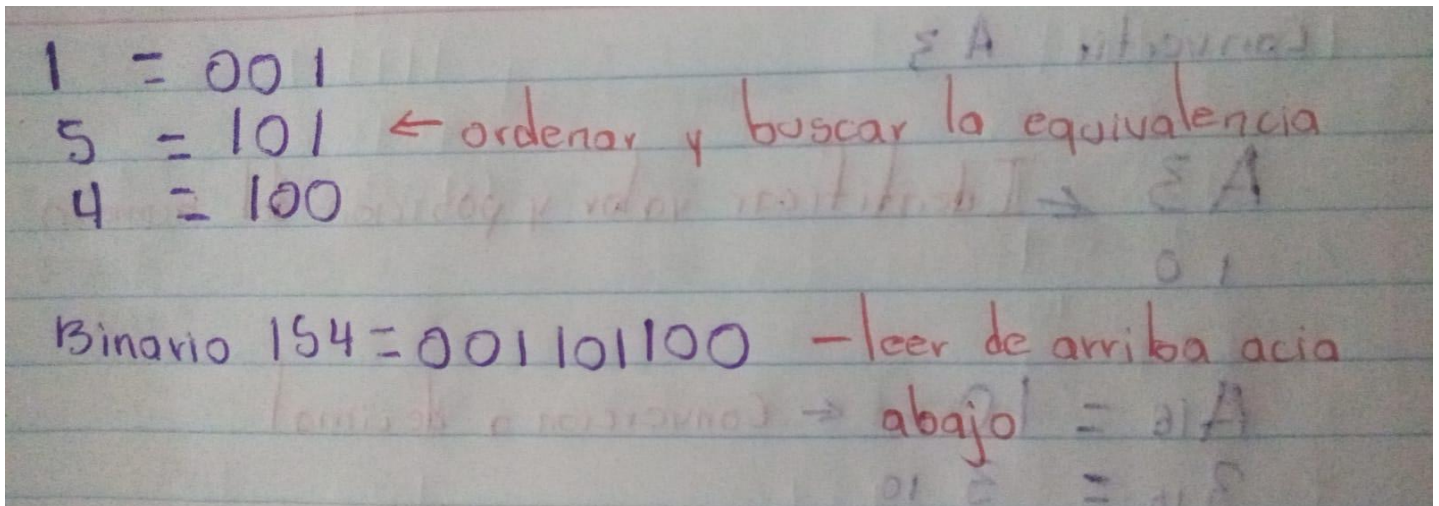 1 = 001
5 = 101 ← ordenar y buscar la equivalencia
4 = 100
Binario 154 = 001101100 - leer de arriba acia
abajo